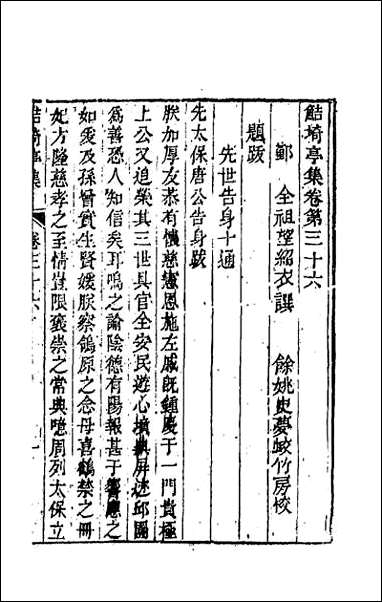 鮚埼亭集卷第三十六
鄞 全祖望紹衣譔 餘姚史夢蛟竹房校
題跋
先世告身十通
先太保唐公告身跋
朕加厚友恭有懷慈憲恩施左戚旣鍾慶于一門貴極
上公又追榮其三世具官全安民遊心墳典屏迹邱園
爲善恐人知信矣耳鳴之諭陰德有陽報甚于響應之
如爰及孫曾實生賢媛朕察鴒原之念母喜鶴禁之冊
妃方隆慈孝之至情豈限褒崇之常典噫周列太保立
鮚埼亭集 卷三十六 一